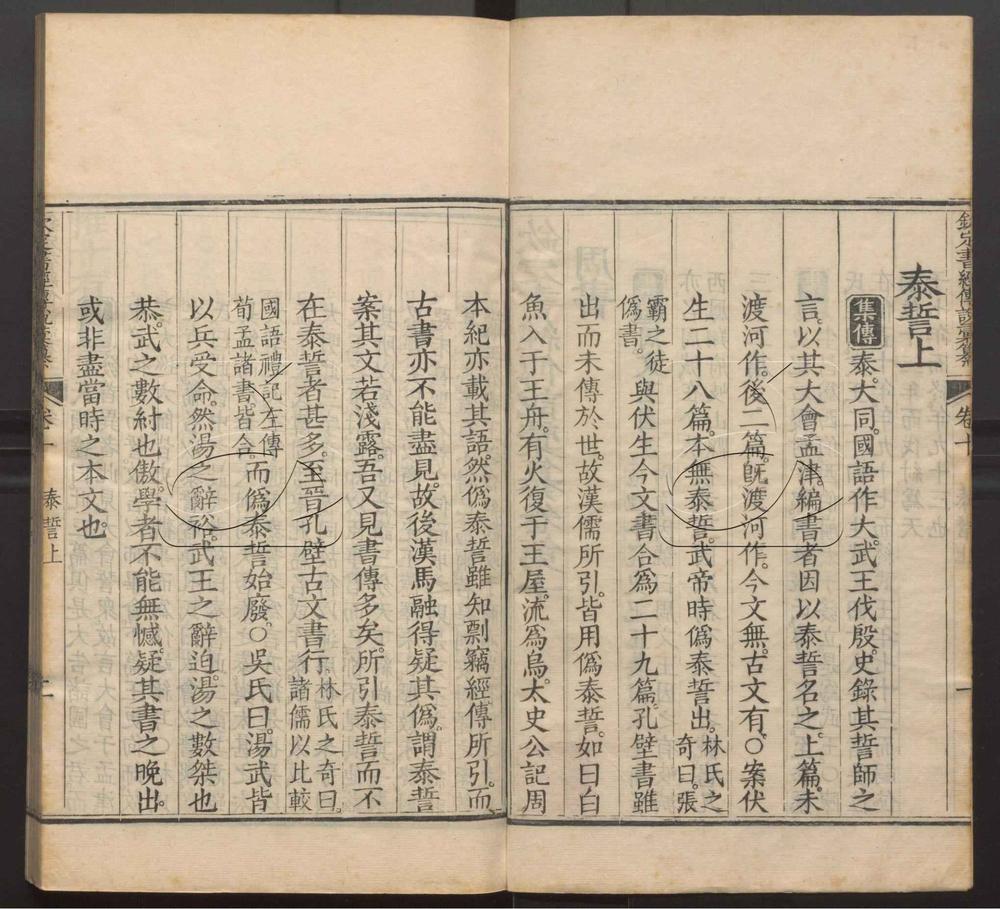 欽定書經傳說彙纂
卷十
一
泰誓上
集傳 泰。大同。國語作大。武王伐殷。史錄其誓師之
言。以其大會孟津。編書者因以泰誓名之。上篇。未
渡河作。後二篇。旣渡河作。今文無。古文有。○案伏
生二十八篇。本無泰誓。武帝時偽泰誓出。林氏之奇曰。張
霸之徒偽書。與伏生今文書合爲二十九篇。孔壁書雖
出而未傳於世。故漢儒所引。皆用偽泰誓。如曰白
魚入于王舟。有火復于王屋。流爲烏。太史公記周
本紀亦載其語。然偽泰誓雖知剽竊經傳所引。而
古書亦不能盡見。故後漢馬融得疑其偽。謂泰誓
案其文若淺露。吾又見書傳多矣。所引泰誓而不
在泰誓者甚多。至晉孔壁古文書行。林氏之奇曰。諸儒以比較
國語禮記左傳荀孟諸書皆合。而偽泰誓始廢。○吳氏曰。湯武皆
以兵受命。然湯之辭裕。武王之辭迫。湯之數桀也
恭。武之數紂也傲。學者不能無憾。疑其書之晚出。
或非盡當時之本文也。
泰誓上